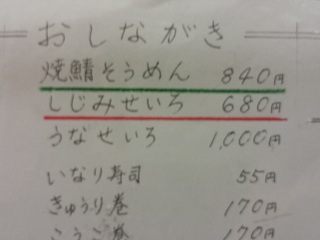 おしながき
焼鯖そうめん 840円
しじみせいろ 680円
うなせいろ 1,000円
いなり寿司 55円
きゅうり巻 170円
こうこ巻 170円